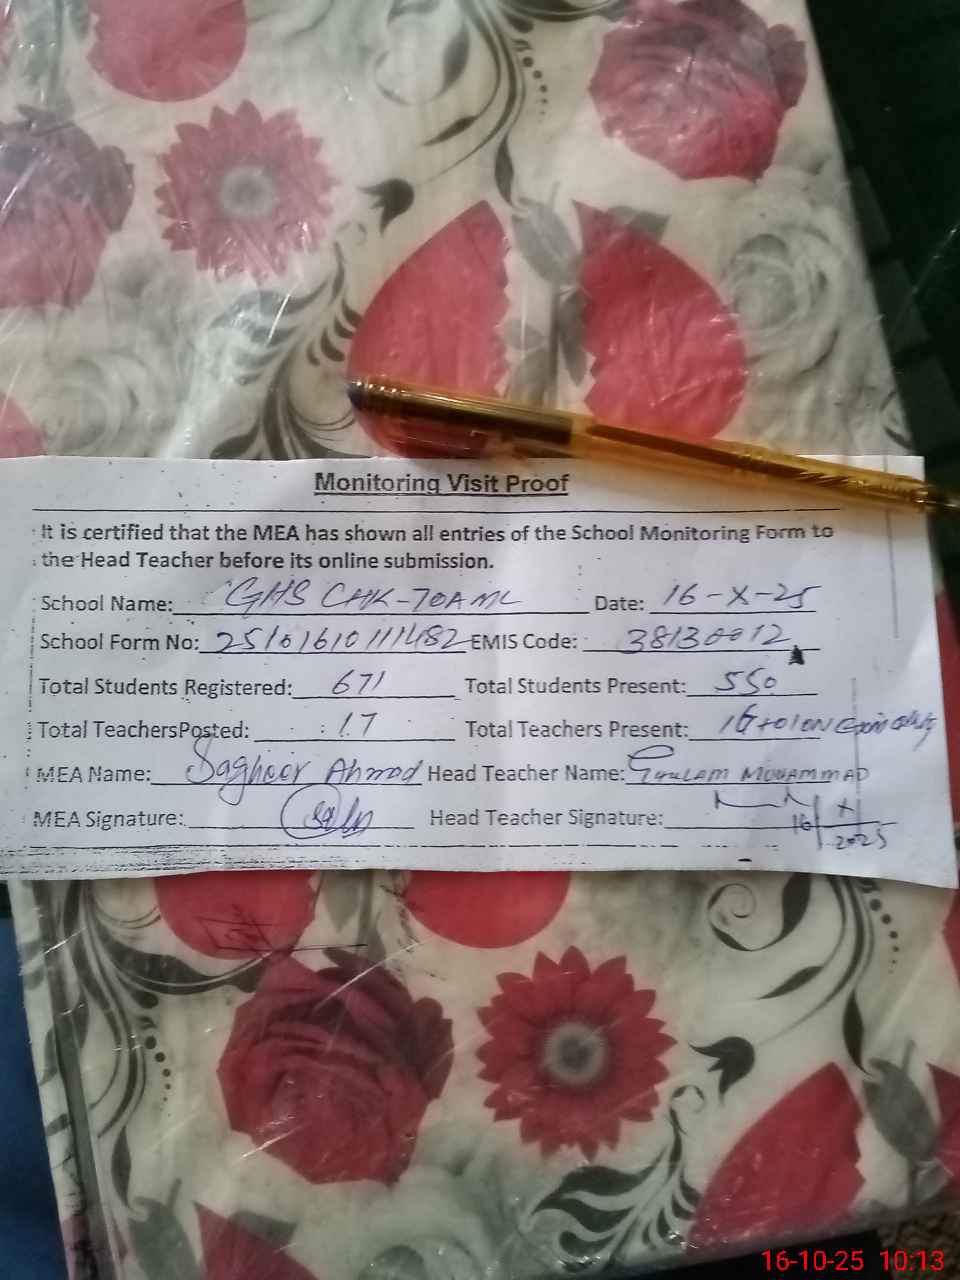 Monitoring Visit Proof
It is certified that the MEA has shown all entries of the School Monitoring Form to
the Head Teacher before its online submission.
School Name: GHS CHK-70A ML Date: 16-X-25
School Form No: 25101610111482 EMIS Code: 38130012
Total Students Registered: 671 Total Students Present: 550
Total TeachersPosted: 17 Total Teachers Present: 16+01 ON Exam duty
MEA Name: Sagheer Ahmad Head Teacher Name: GHULAM MUHAMMAD
MEA Signature: Head Teacher Signature:
16 X
2025
16-10-25 10:13